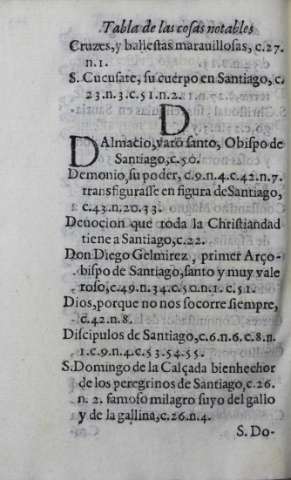 Tabla de las cosas notables
Cruzes, y ballestas marauillosas, c.27.
n.1.
S. Cucufate, su cuerpo en Santiago, c.
23.n.3.c.51.n.2.
D
DAlmacio, varõ santo, Obispo de
Santiago, c.50.
Demonio, su poder, c.9.n.4.c.42.n.7.
transfigurasse en figura de Santiago,
c.43.n.20.33.
Deuocion que toda la Christiandad
tiene a Santiago, c.22.
Don Diego Gelmirez, primer Arço-
bispo de Santiago, santo y muy vale
roso, c.49.n.34.c.50.n.1. c.51.
Dios, porque no nos socorre siempre,
c.42.n.8.
Discipulos de Santiago, c.6.n.6.c.8.n.
1.c.9.n.4.c.53.54.55.
S. Domingo de la Calçada bienhechor
de los peregrinos de Santiago, c.26.
n. 2. famoso milagro suyo del gallo
y de la gallina, c.26.n.4.
S. Do-